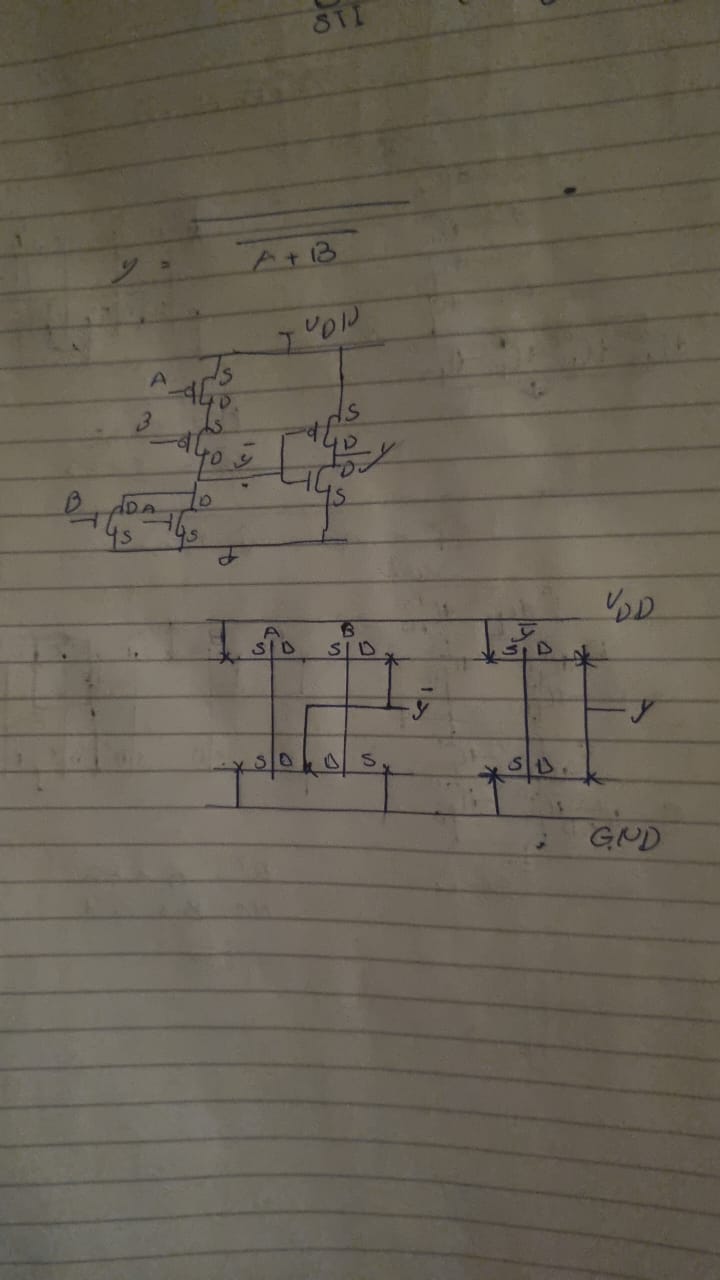 STI
y = A + B
VDD
A S
D
B S
D ȳ
S
D y
D
S
B D A D
S S
VDD
A B ȳ
S D S D S D
ȳ y
S D D S S D
GND